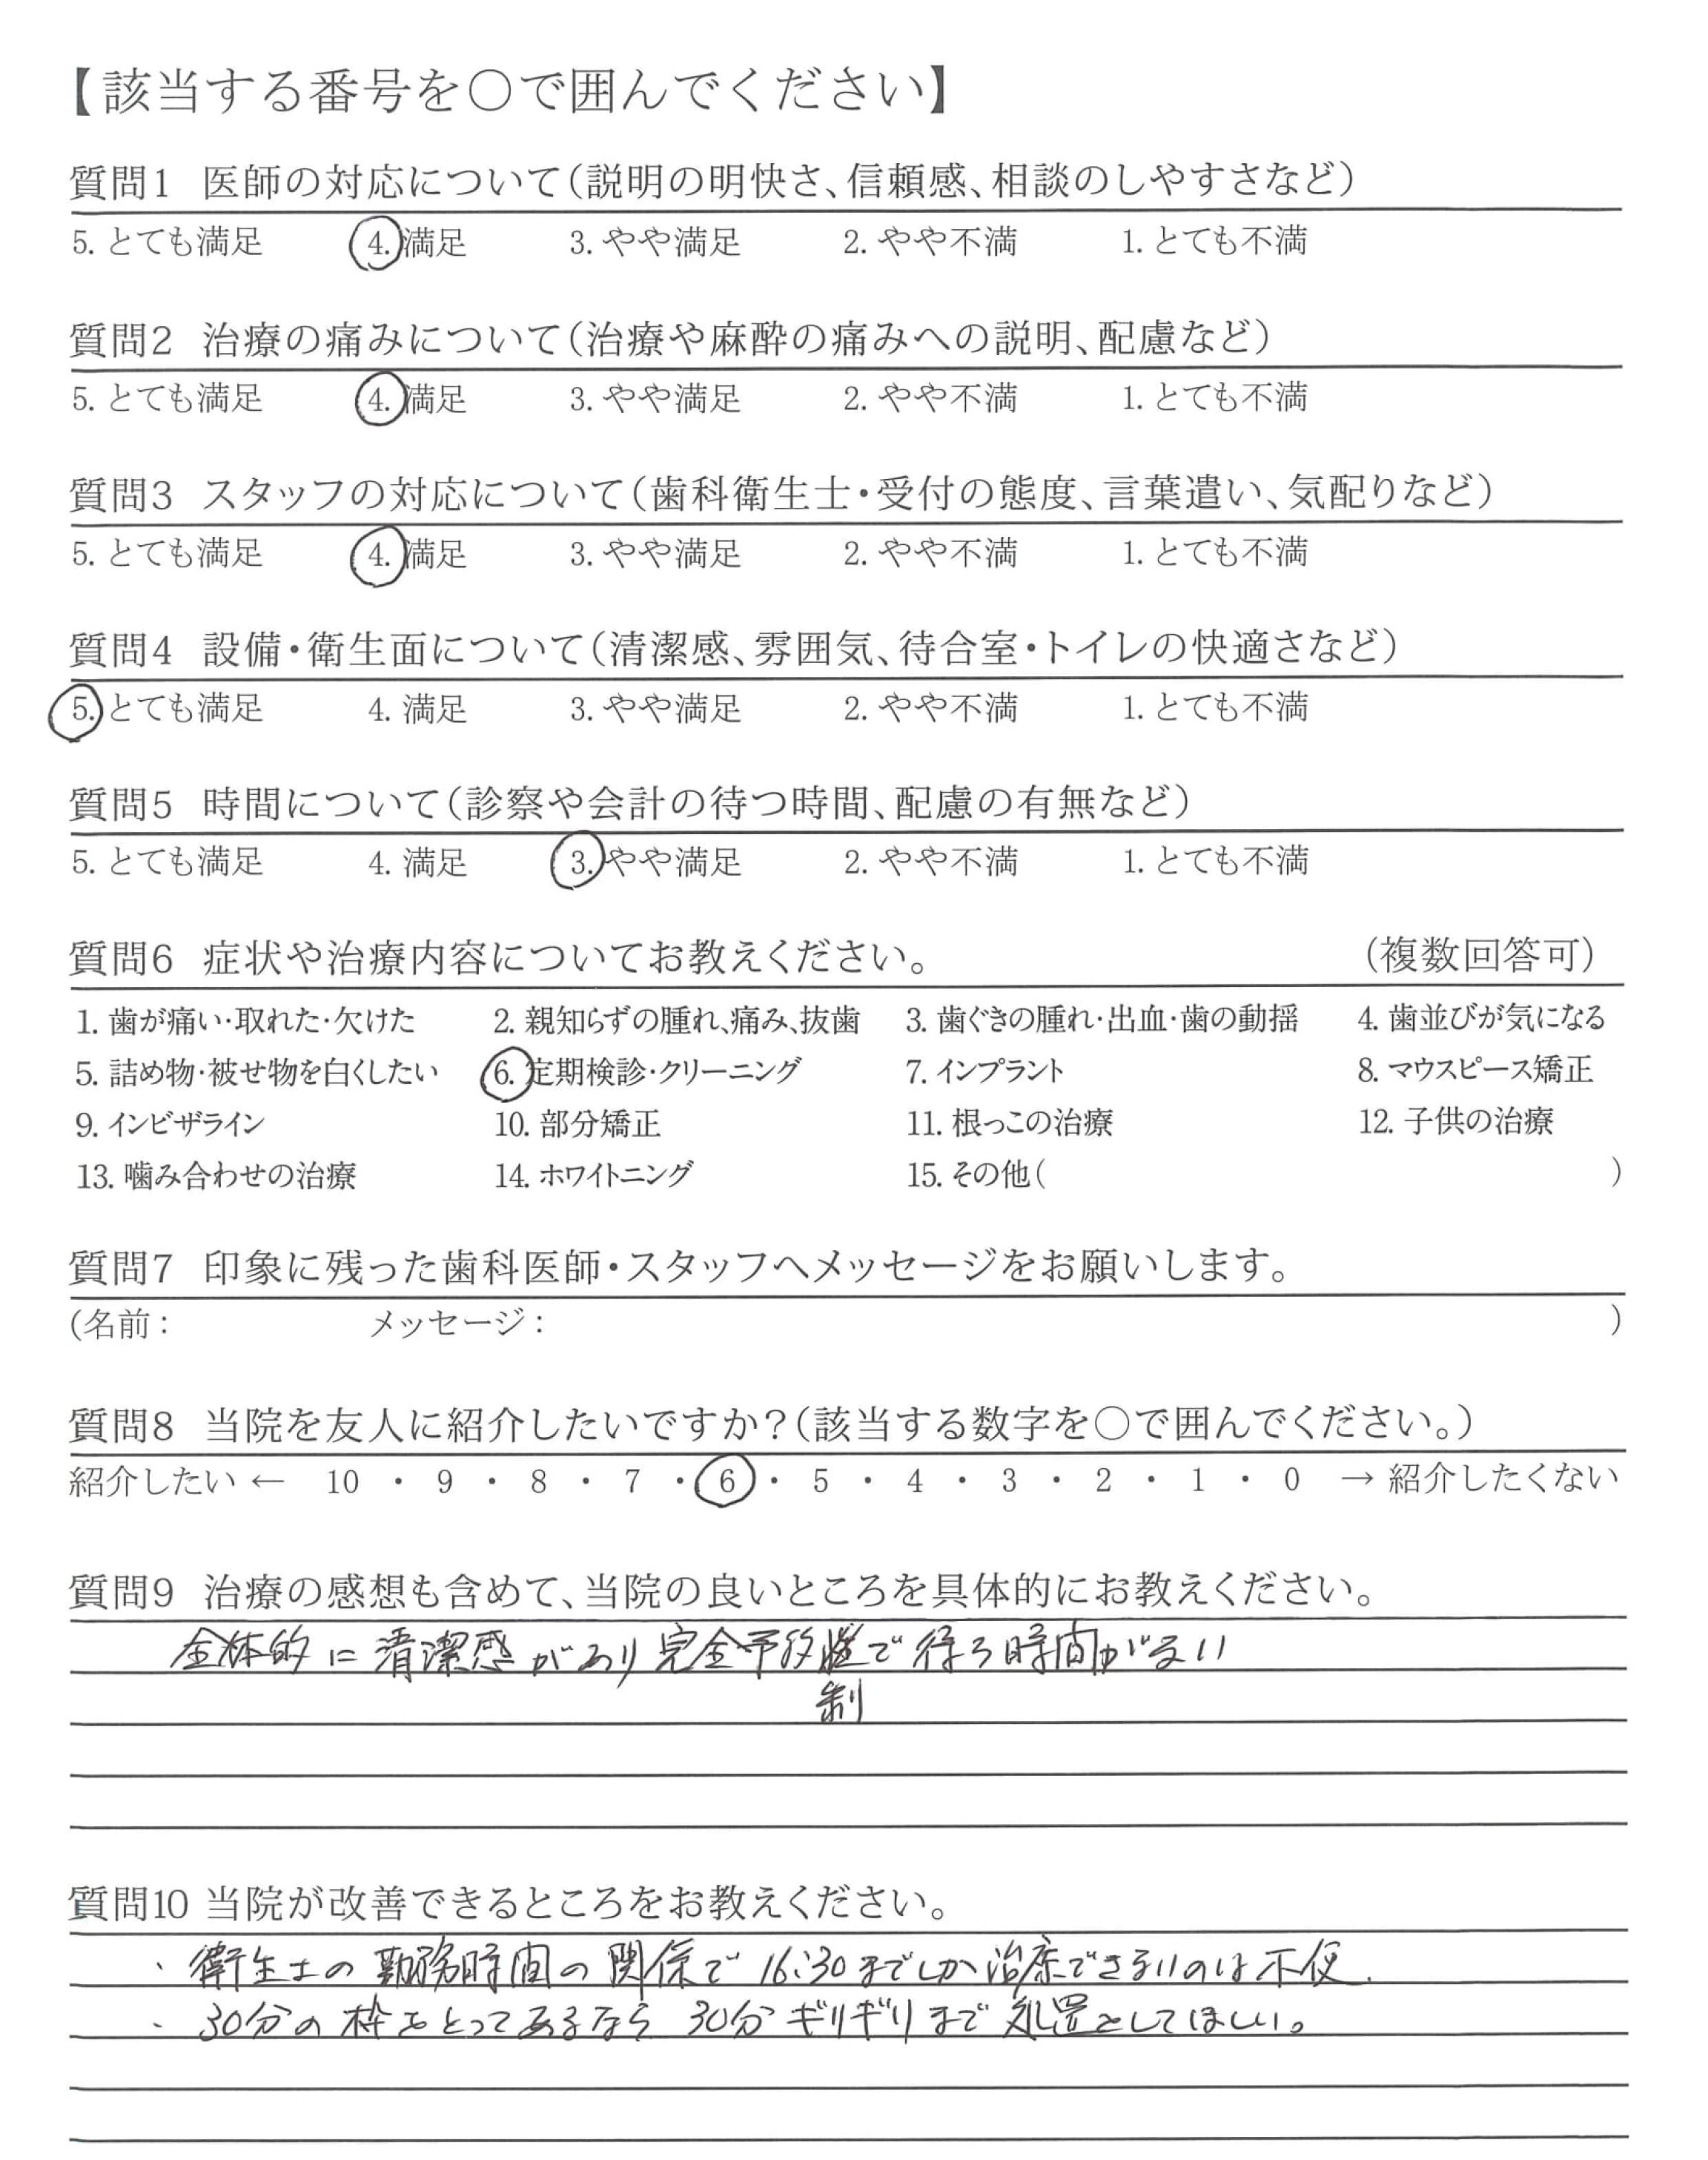 【該当する番号を○で囲んでください】
質問1 医師の対応について(説明の明快さ、信頼感、相談のしやすさなど)
5. とても満足 4. 満足 3. やや満足 2. やや不満 1. とても不満
質問2 治療の痛みについて(治療や麻酔の痛みへの説明、配慮など)
5. とても満足 4. 満足 3. やや満足 2. やや不満 1. とても不満
質問3 スタッフの対応について(歯科衛生士・受付の態度、言葉遣い、気配りなど)
5. とても満足 4. 満足 3. やや満足 2. やや不満 1. とても不満
質問4 設備・衛生面について(清潔感、雰囲気、待合室・トイレの快適さなど)
5. とても満足 4. 満足 3. やや満足 2. やや不満 1. とても不満
質問5 時間について(診察や会計の待つ時間、配慮の有無など)
5. とても満足 4. 満足 3. やや満足 2. やや不満 1. とても不満
質問6 症状や治療内容についてお教えください。 (複数回答可)
1. 歯が痛い・取れた・欠けた 2. 親知らずの腫れ、痛み、抜歯 3. 歯ぐきの腫れ・出血・歯の動揺 4. 歯並びが気になる
5. 詰め物・被せ物を白くしたい 6. 定期検診・クリーニング 7. インプラント 8. マウスピース矯正
9. インビザライン 10. 部分矯正 11. 根っこの治療 12. 子供の治療
13. 噛み合わせの治療 14. ホワイトニング 15. その他( )
質問7 印象に残った歯科医師・スタッフへメッセージをお願いします。
(名前: メッセージ: )
質問8 当院を友人に紹介したいですか?(該当する数字を○で囲んでください。)
紹介したい ← 10 ・ 9 ・ 8 ・ 7 ・ 6 ・ 5 ・ 4 ・ 3 ・ 2 ・ 1 ・ 0 → 紹介したくない
質問9 治療の感想も含めて、当院の良いところを具体的にお教えください。
全体的に清潔感があり完全予約で待つ時間がない
制
質問10 当院が改善できるところをお教えください。
・衛生士の勤務時間の関係で16:30までしか治療できないのは不便.
・30分の枠をとってあるなら30分ギリギリまで処置をしてほしい。